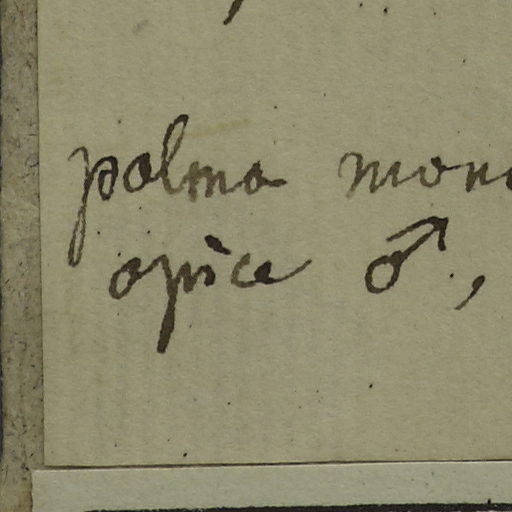 palma mono
apice ♂,